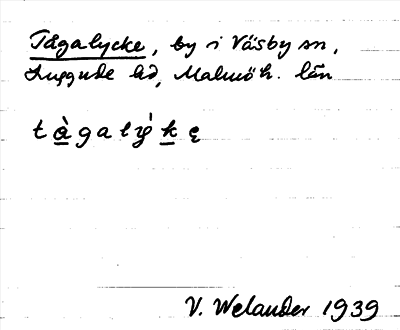 Tågalycke, by i Väsby sn,
Luggude hd, Malmöh. län
t à̲ g a l ý̨ k̲ ę
V. Welander 1939